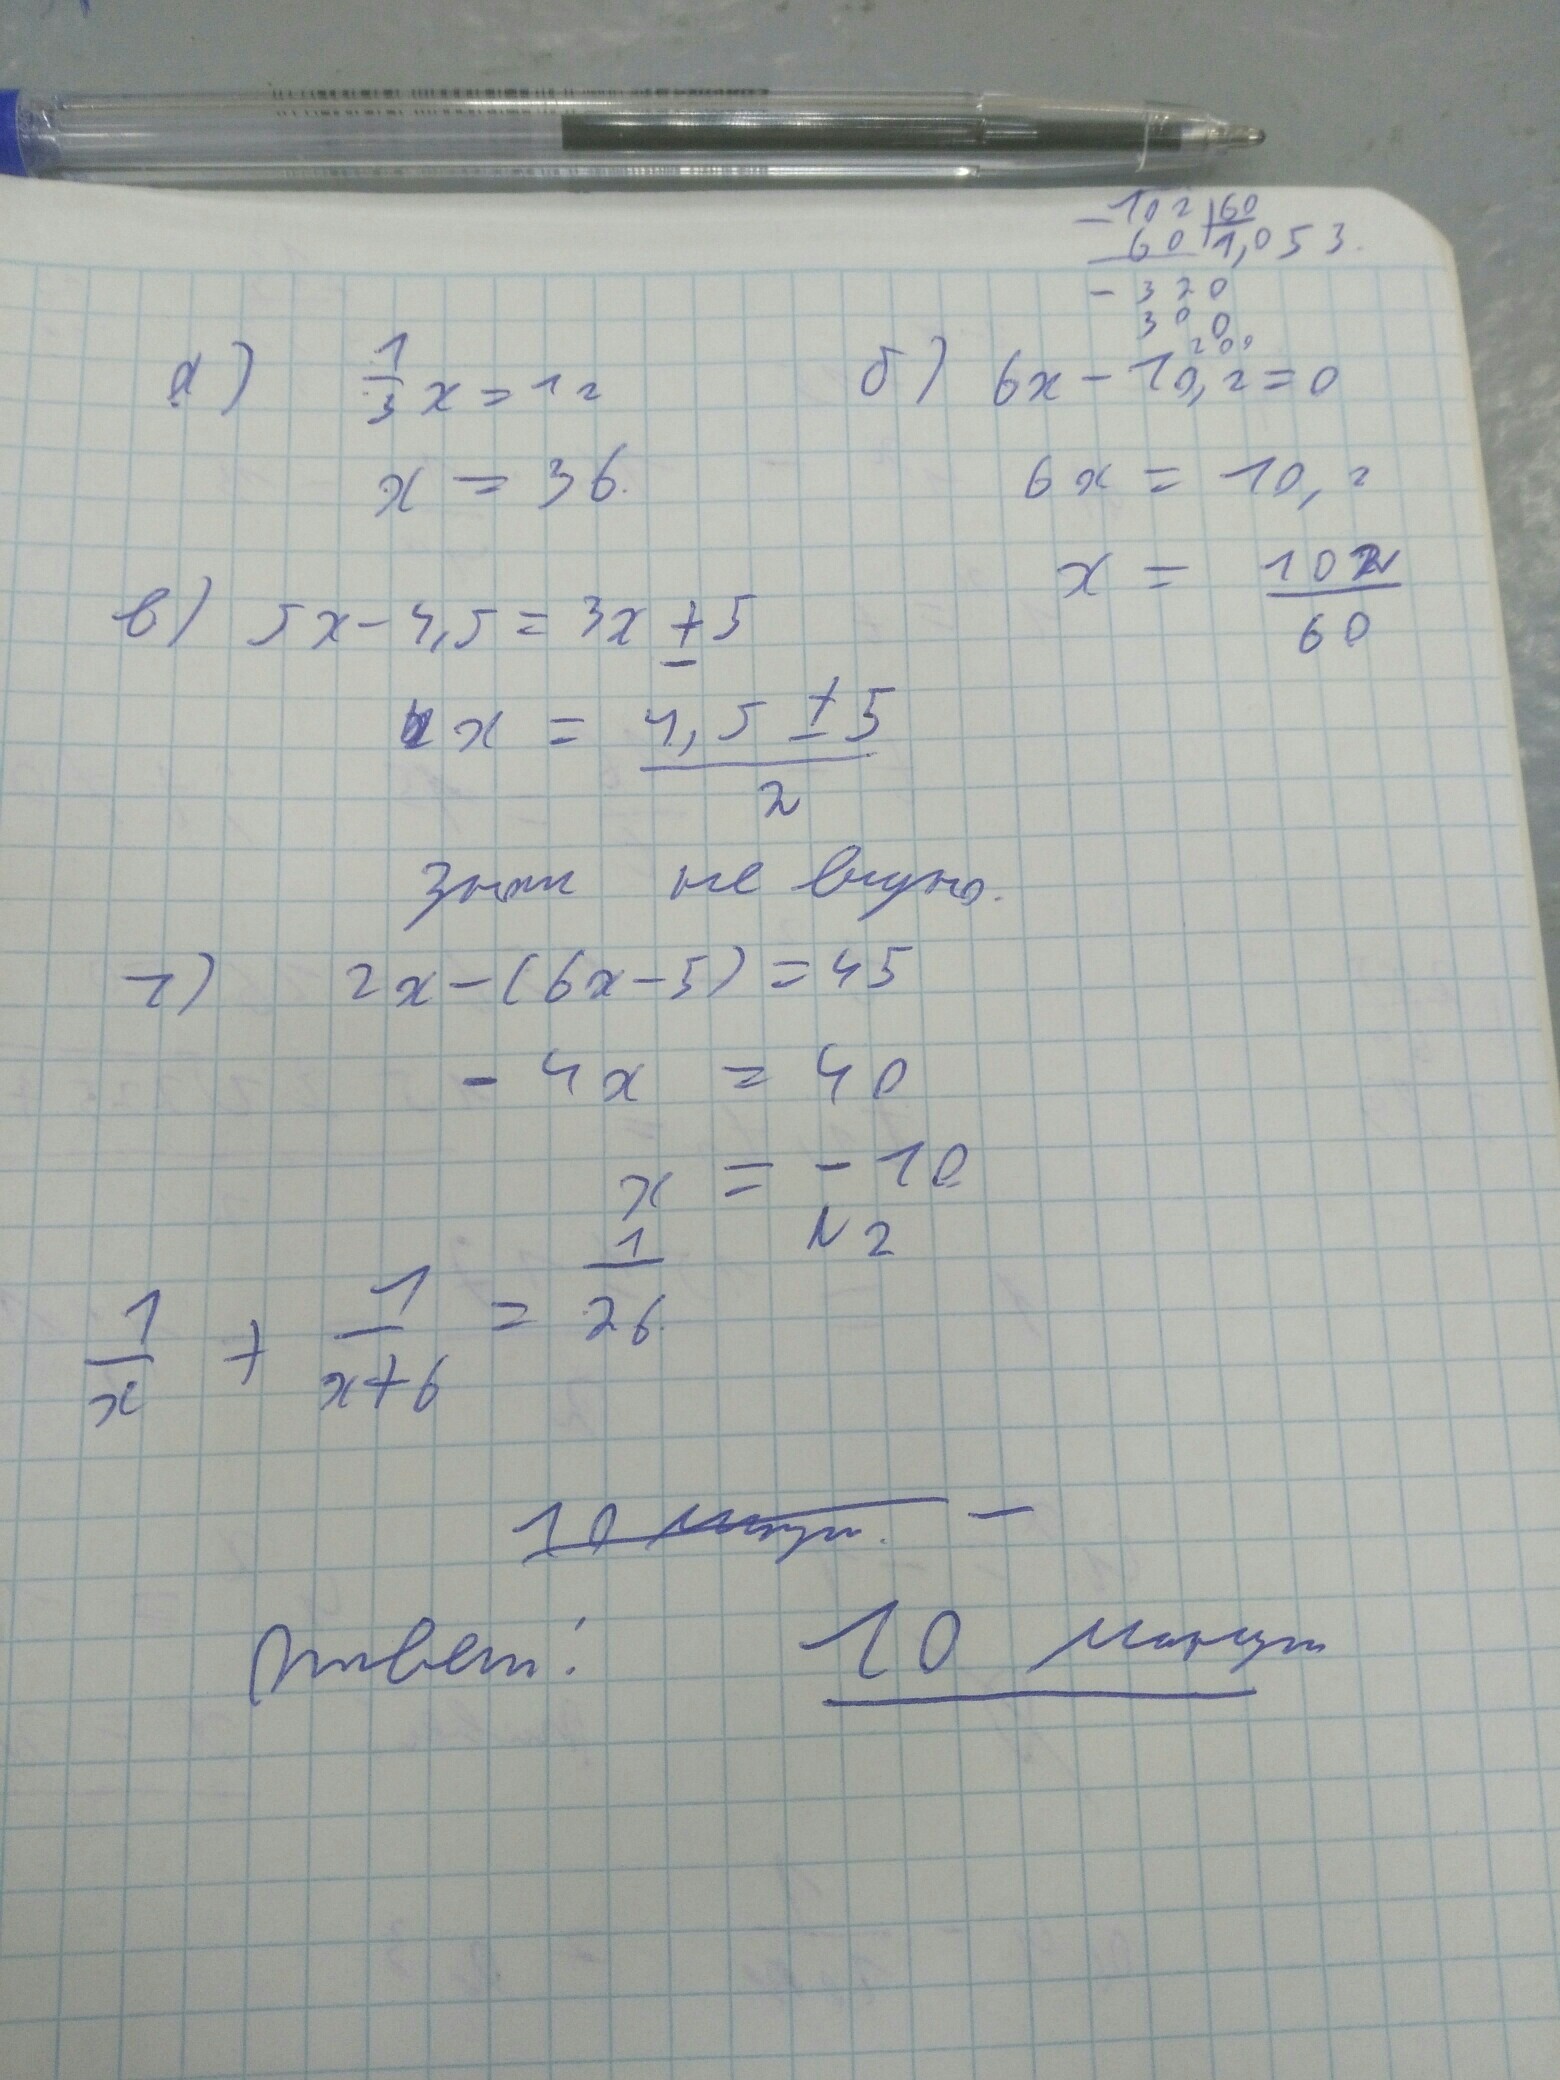 102 | 60
- 60 | 1,053.
- 320
300
200
а) 1/3 x = 12
б) 6x - 10,2 = 0
x = 36.
6x = 10,2
x = 102/60
в) 5x - 4,5 = 3x ± 5
x = (4,5 ± 5)/2
не
г) 2x - (6x - 5) = 45
- 4x = 40
x = - 10
N2
1/x + 1/(x+6) = 1/26
10 минут. -
Ответ: 10 минут